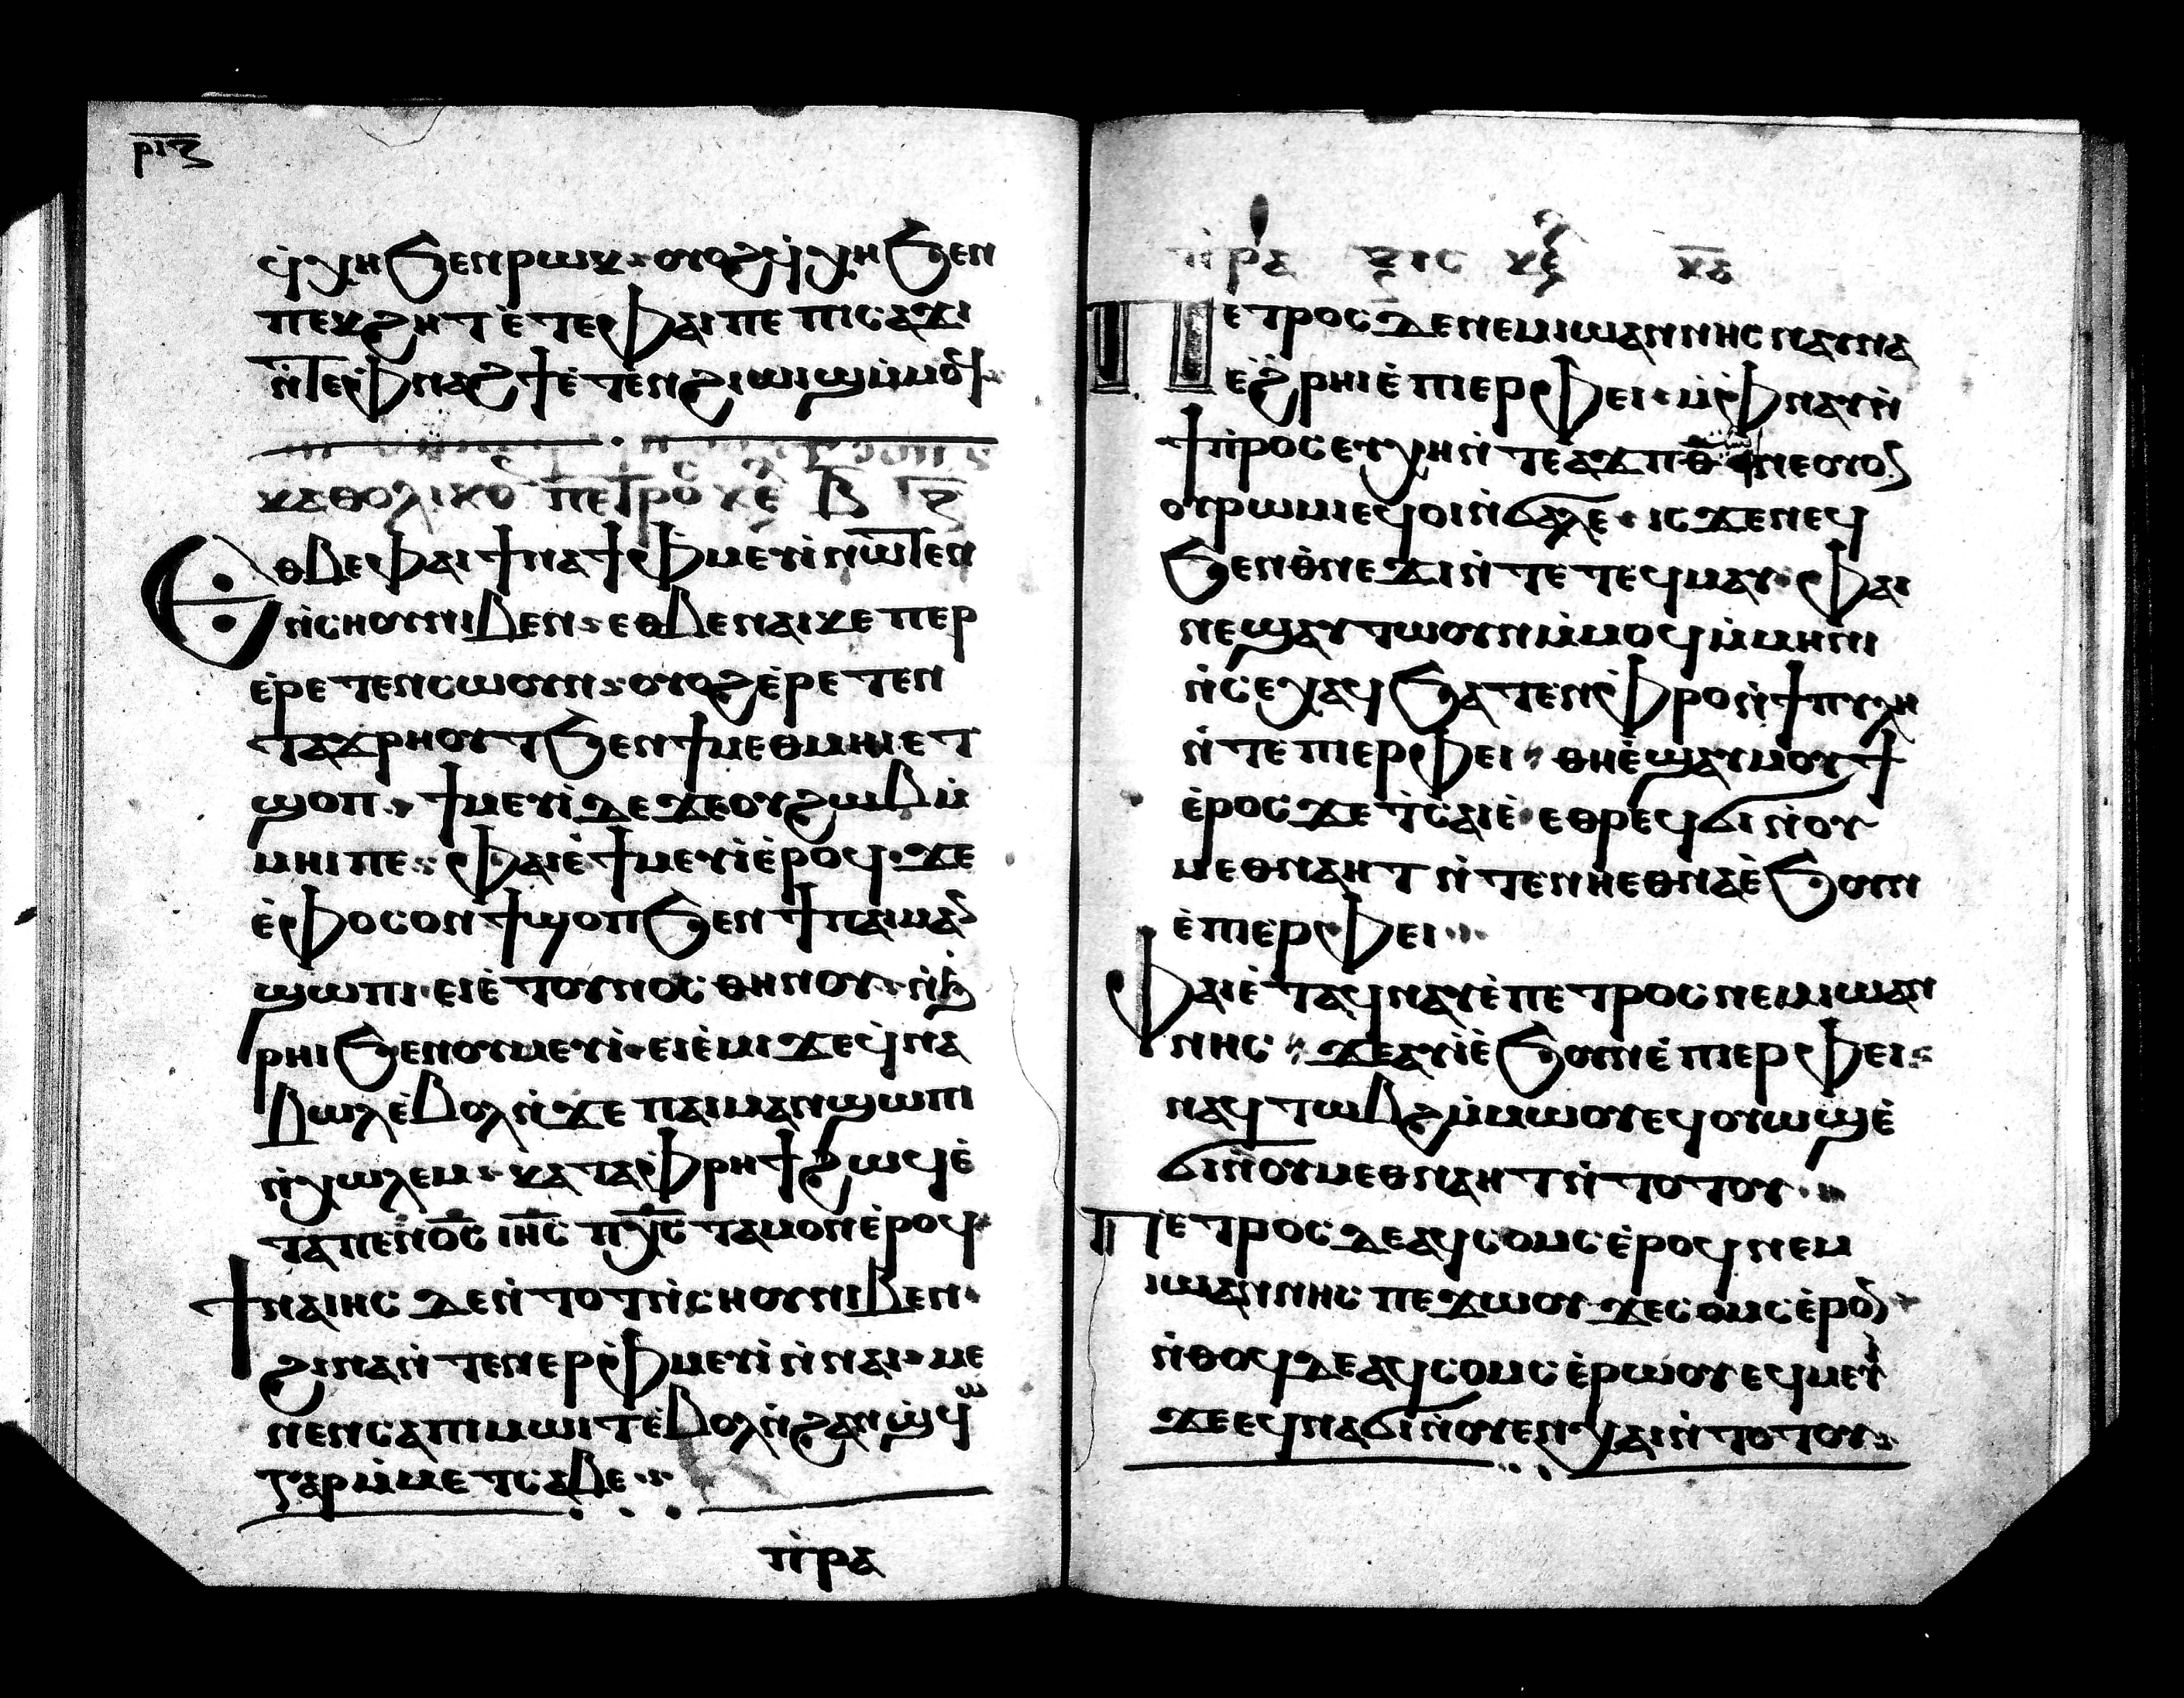 ⲣⲓⲍ
ϥⲭⲏ ϧⲉⲛ ⲣⲱⲕ ⲟⲩⲟϩ ϥⲭⲏ ϧⲉⲛ
ⲡⲉⲕϩⲏⲧ ⲉ̀ⲧⲉ ⲫⲁⲓ ⲡⲉ ⲡⲓⲥⲁϫⲓ
ⲛ̀ⲧⲉ ⲫ̀ⲛⲁϩϯ ⲉ̀ⲧⲉⲛϩⲓⲱⲓϣ ⲙ̀ⲙⲟϥ
ⲕⲁⲑⲟⲗⲓⲕⲟⲛ ⲡⲉⲧⲣⲟⲩ ⲕⲉ ⲃ̅
ⲉⲑⲃⲉ ⲫⲁⲓ ϯⲛⲁϯ ⲫ̀ⲙⲉⲩⲓ̀ ⲛⲱⲧⲉⲛ
ⲛ̀ⲥⲏⲟⲩ ⲛⲓⲃⲉⲛ ⲉⲑⲃⲉ ⲛⲁⲓ ⲕⲉ ⲡⲉⲣ
ⲉ̀ⲣⲉⲧⲉⲛⲥⲱⲟⲩⲛ ⲟⲩⲟϩ ⲉ̀ⲣⲉⲧⲉⲛ
ⲧⲁϫⲣⲏⲟⲩⲧ ϧⲉⲛ ϯⲙⲉⲑⲙⲏⲓ ⲉⲧ
ϣⲟⲡ ϯⲙⲉⲩⲓ̀ ⲇⲉ ϫⲉ ⲟⲩϩⲱⲃ ⲙ̀
ⲙⲏⲓ ⲡⲉ ⲫⲁⲓ ⲉ̀ϯⲙⲉⲩⲓ̀ ⲉ̀ⲣⲟϥ ϫⲉ
ⲉ̀ⲫⲟⲥⲟⲛ ϯϣⲟⲡ ϧⲉⲛ ⲡⲁⲓⲙⲁⲛ
ϣⲱⲡⲓ ⲉⲓⲉ̀ⲧⲟⲩⲛⲟⲥ ⲑⲏⲛⲟⲩ ⲛ̀ϧ
ⲣⲏⲓ ϧⲉⲛ ⲟⲩⲙⲉⲩⲓ̀ ⲉⲓⲉ̀ⲙⲓ ϫⲉ ϥ̀ⲛⲁ
ⲃⲱⲗ ⲉ̀ⲃⲟⲗ ⲛ̀ϫⲉ ⲡⲁⲓⲙⲁⲛϣⲱⲡⲓ
ⲛ̀ⲭⲱⲗⲉⲙ ⲕⲁⲧⲁ ⲫ̀ⲣⲏϯ ϩⲱϥ ⲉ̀
ⲧⲁ ⲡⲉⲛⲟ̅ⲥ̅ ⲓⲏ̅ⲥ̅ ⲡⲭ̅ⲥ̅ ⲧⲁⲙⲟⲛ ⲉ̀ⲣⲟϥ
ϯⲛⲁⲓⲏⲥ ⲇⲉ ⲛ̀ⲧⲟⲧ ⲛ̀ⲥⲏⲟⲩ ⲛⲓⲃⲉⲛ
ϩⲓⲛⲁ ⲛ̀ⲧⲉⲛⲉⲣⲫ̀ⲙⲉⲩⲓ̀ ⲛ̀ⲛⲁⲓ ⲙⲉ
ⲛⲉⲛⲥⲁ ⲡⲓⲙⲱⲓⲧ ⲉ̀ⲃⲟⲗ ⲛ̀ϩⲁⲛϣϥⲱ
ⲅⲁⲣ ⲙ̀ⲙⲉⲧⲥⲁⲃⲉ
ⲡ̀ⲣⲁ
ⲡ̀ⲣⲁⲝⲓⲥ ⲕⲉ ⲕⲁ
ⲡⲉⲧⲣⲟⲥ ⲇⲉ ⲛⲉⲙ ⲓⲱⲁⲛⲛⲏⲥ ⲛⲁⲩⲛⲁ
ⲉϩ̀ⲣⲏⲓ ⲉ̀ⲡⲓⲉⲣⲫⲉⲓ ⲙ̀ⲫ̀ⲛⲁⲩ ⲛ̀
ϯⲡ̀ⲣⲟⲥⲉⲩⲭⲏ ⲛ̀ⲧⲉ ⲁϫⲡ ⲑ̅ ⲛⲉ ⲟⲩⲟϩ
ⲟⲩⲣⲱⲙⲓ ⲉϥⲟⲓ ⲛ̀ϭⲁⲗⲉ ⲓⲥϫⲉⲛ ⲉϥ
ϧⲉⲛ ⲑ̀ⲛⲉϫⲓ ⲛ̀ⲧⲉ ⲧⲉϥⲙⲁⲩ ⲫⲁⲓ
ⲛⲉ ϣⲁⲩⲧⲱⲟⲩⲛ ⲙ̀ⲙⲟϥ ⲙ̀ⲙⲏⲛⲓ
ⲛ̀ⲥⲉⲭⲁϥ ϧⲁⲧⲉⲛ ⲫ̀ⲣⲟ ⲛ̀ϯⲡⲩⲗⲏ
ⲛ̀ⲧⲉ ⲡⲓⲉⲣⲫⲉⲓ ⲑⲏ ⲉ̀ϣⲁⲩⲙⲟⲩϯ
ⲉ̀ⲣⲟⲥ ϫⲉ ϯⲥⲁⲓⲉ̀ ⲉⲑⲣⲉϥϭⲓ ⲛ̀ⲟⲩ
ⲙⲉⲑⲛⲁⲏⲧ ⲛ̀ⲧⲉⲛ ⲛⲏ ⲉⲑⲛⲁⲉ̀ϧⲟⲩⲛ
ⲉ̀ⲡⲓⲉⲣⲫⲉⲓ
ⲫⲁⲓ ⲉ̀ⲧⲁϥⲛⲁⲩ ⲉ̀ⲡⲉⲧⲣⲟⲥ ⲛⲉⲙ ⲓⲱⲁⲛ
ⲛⲏⲥ ϫⲉ ⲁⲩⲓ̀ ⲉ̀ϧⲟⲩⲛ ⲉ̀ⲡⲓⲉⲣⲫⲉⲓ
ⲛⲁϥⲧⲱⲃϩ ⲙ̀ⲙⲱⲟⲩ ⲉϥⲟⲩⲱϣ ⲉ̀
ϭⲓ ⲛ̀ⲟⲩⲙⲉⲑⲛⲁⲏⲧ ⲛ̀ⲧⲟⲧⲟⲩ
ⲡⲉⲧⲣⲟⲥ ⲇⲉ ⲁϥⲥⲟⲙⲥ ⲉ̀ⲣⲟϥ ⲛⲉⲙ
ⲓⲱⲁⲛⲛⲏⲥ ⲡⲉϫⲱⲟⲩ ϫⲉ ⲥⲟⲙⲥ ⲉ̀ⲣⲟⲛ
ⲛ̀ⲑⲟϥ ⲇⲉ ⲁϥⲥⲟⲙⲥ ⲉ̀ⲣⲱⲟⲩ ⲉϥⲙⲉⲩⲓ
ϫⲉ ⲉϥⲛⲁϭⲓ ⲛ̀ⲟⲩⲉⲛⲭⲁⲓ ⲛ̀ⲧⲟⲧⲟⲩ